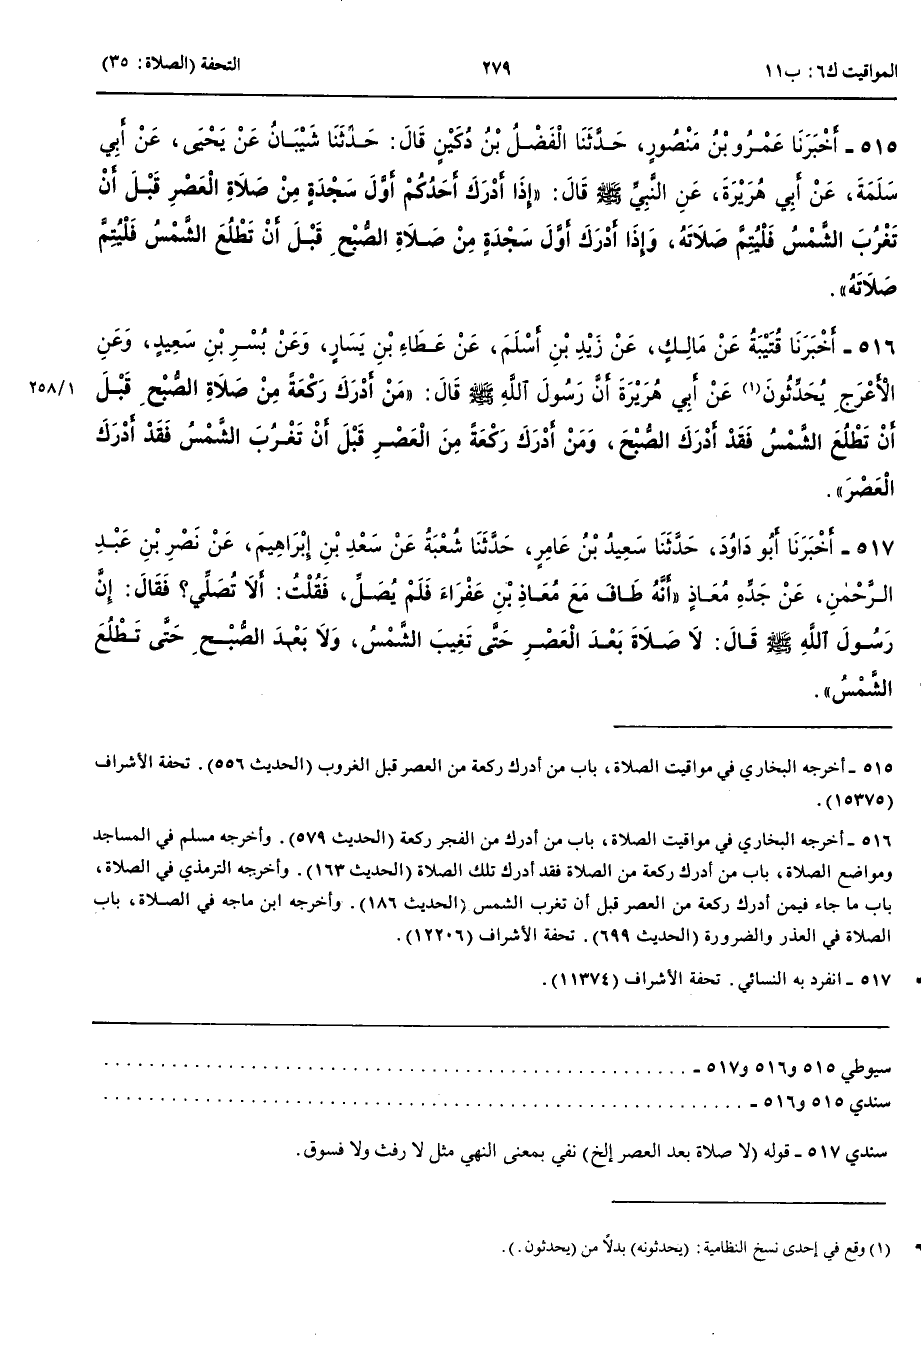 المواقيت ك٦: ب١١ ٢٧٩ التحفة (الصلاة: ٣٥)
٥١٥ ـ أَخْبَرَنَا عَمْرُو بْنُ مَنْصُورٍ، حَدَّثَنَا الْفَضْلُ بْنُ دُكَيْنٍ قَالَ: حَدَّثَنَا شَيْبَانُ عَنْ يَحْيَى، عَنْ أَبِي
سَلَمَةَ، عَنْ أَبِي هُرَيْرَةَ، عَنِ النَّبِيِّ ﷺ قَالَ: «إِذَا أَدْرَكَ أَحَدُكُمْ أَوَّلَ سَجْدَةٍ مِنْ صَلَاةِ الْعَصْرِ قَبْلَ أَنْ
تَغْرُبَ الشَّمْسُ فَلْيُتِمَّ صَلَاتَهُ، وَإِذَا أَدْرَكَ أَوَّلَ سَجْدَةٍ مِنْ صَلَاةِ الصُّبْحِ قَبْلَ أَنْ تَطْلُعَ الشَّمْسُ فَلْيُتِمَّ
صَلَاتَهُ».
٥١٦ ـ أَخْبَرَنَا قُتَيْبَةُ عَنْ مَالِكٍ، عَنْ زَيْدِ بْنِ أَسْلَمَ، عَنْ عَطَاءِ بْنِ يَسَارٍ، وَعَنْ بُسْرِ بْنِ سَعِيدٍ، وَعَنِ
الْأَعْرَجِ يُحَدِّثُونَ(١) عَنْ أَبِي هُرَيْرَةَ أَنَّ رَسُولَ ٱللَّهِ ﷺ قَالَ: «مَنْ أَدْرَكَ رَكْعَةً مِنْ صَلَاةِ الصُّبْحِ قَبْلَ ٢٥٨/١
أَنْ تَطْلُعَ الشَّمْسُ فَقَدْ أَدْرَكَ الصُّبْحَ، وَمَنْ أَدْرَكَ رَكْعَةً مِنَ الْعَصْرِ قَبْلَ أَنْ تَغْرُبَ الشَّمْسُ فَقَدْ أَدْرَكَ
الْعَصْرَ».
٥١٧ ـ أَخْبَرَنَا أَبُو دَاوُدَ، حَدَّثَنَا سَعِيدُ بْنُ عَامِرٍ، حَدَّثَنَا شُعْبَةُ عَنْ سَعْدِ بْنِ إِبْرَاهِيمَ، عَنْ نَصْرِ بْنِ عَبْدِ
الرَّحْمٰنِ، عَنْ جَدِّهِ مُعَاذٍ «أَنَّهُ طَافَ مَعَ مُعَاذِ بْنِ عَفْرَاءَ فَلَمْ يُصَلِّ، فَقُلْتُ: أَلَا تُصَلِّي؟ فَقَالَ: إِنَّ
رَسُولَ ٱللَّهِ ﷺ قَالَ: لَا صَلَاةَ بَعْدَ الْعَصْرِ حَتَّى تَغِيبَ الشَّمْسُ، وَلَا بَعْدَ الصُّبْحِ حَتَّى تَطْلُعَ
الشَّمْسُ».
٥١٥ ـ أخرجه البخاري في مواقيت الصلاة، باب من أدرك ركعة من العصر قبل الغروب (الحديث ٥٥٦). تحفة الأشراف
(١٥٣٧٥).
٥١٦ ـ أخرجه البخاري في مواقيت الصلاة، باب من أدرك من الفجر ركعة (الحديث ٥٧٩). وأخرجه مسلم في المساجد
ومواضع الصلاة، باب من أدرك ركعة من الصلاة فقد أدرك تلك الصلاة (الحديث ١٦٣). وأخرجه الترمذي في الصلاة،
باب ما جاء فيمن أدرك ركعة من العصر قبل أن تغرب الشمس (الحديث ١٨٦). وأخرجه ابن ماجه في الصلاة، باب
الصلاة في العذر والضرورة (الحديث ٦٩٩). تحفة الأشراف (١٢٢٠٦).
٥١٧ ـ انفرد به النسائي. تحفة الأشراف (١١٣٧٤).
سيوطي ٥١٥ و٥١٦ و٥١٧ ـ ..................................................
سندي ٥١٥ و٥١٦ ـ ......................................................
سندي ٥١٧ ـ قوله (لا صلاة بعد العصر إلخ) نفي بمعنى النهي مثل لا رفث ولا فسوق.
(١) وقع في إحدى نسخ النظامية: (يحدثونه) بدلاً من (يحدثون.).